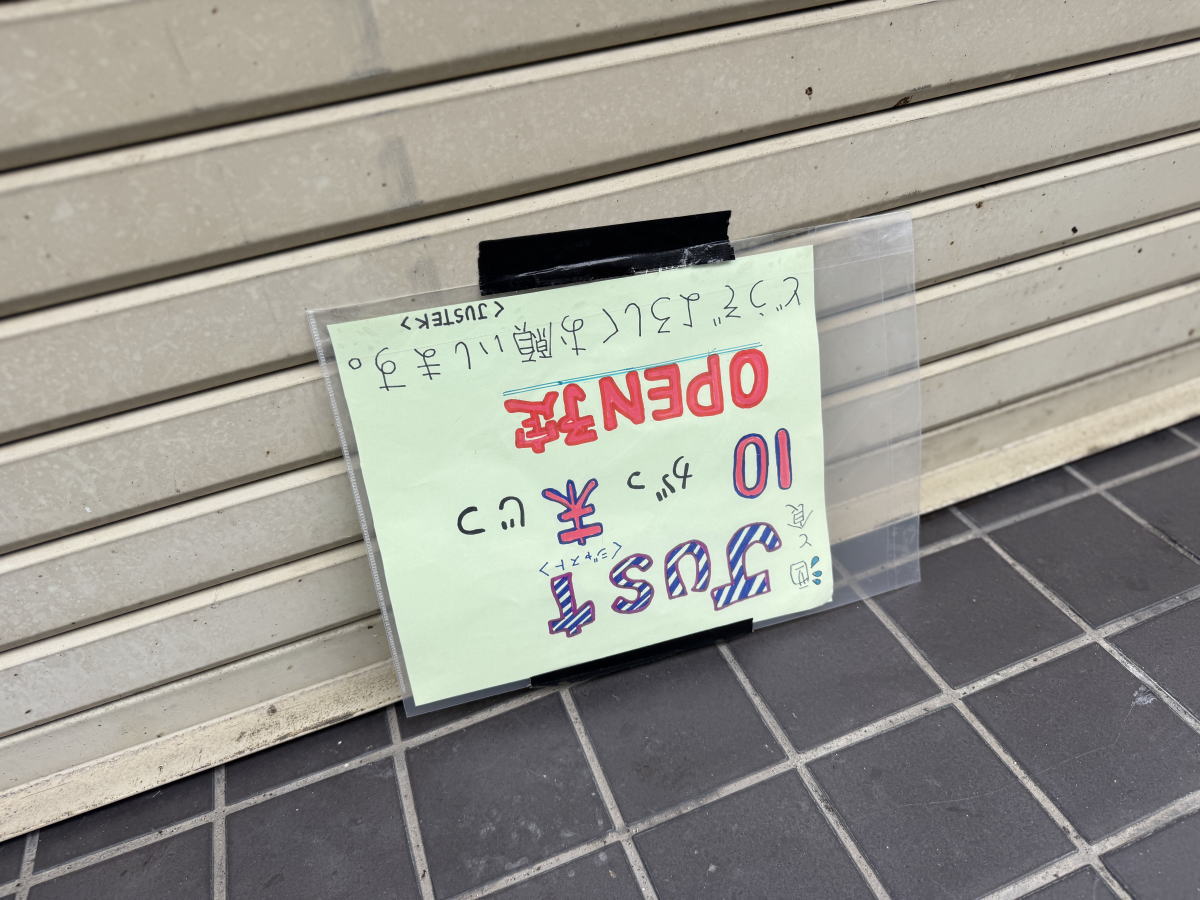 酒と食
JUST
<ジャスト>
10がつ末じつ
OPEN予定
どうぞよろしくお願いします。
<JUSTEK>